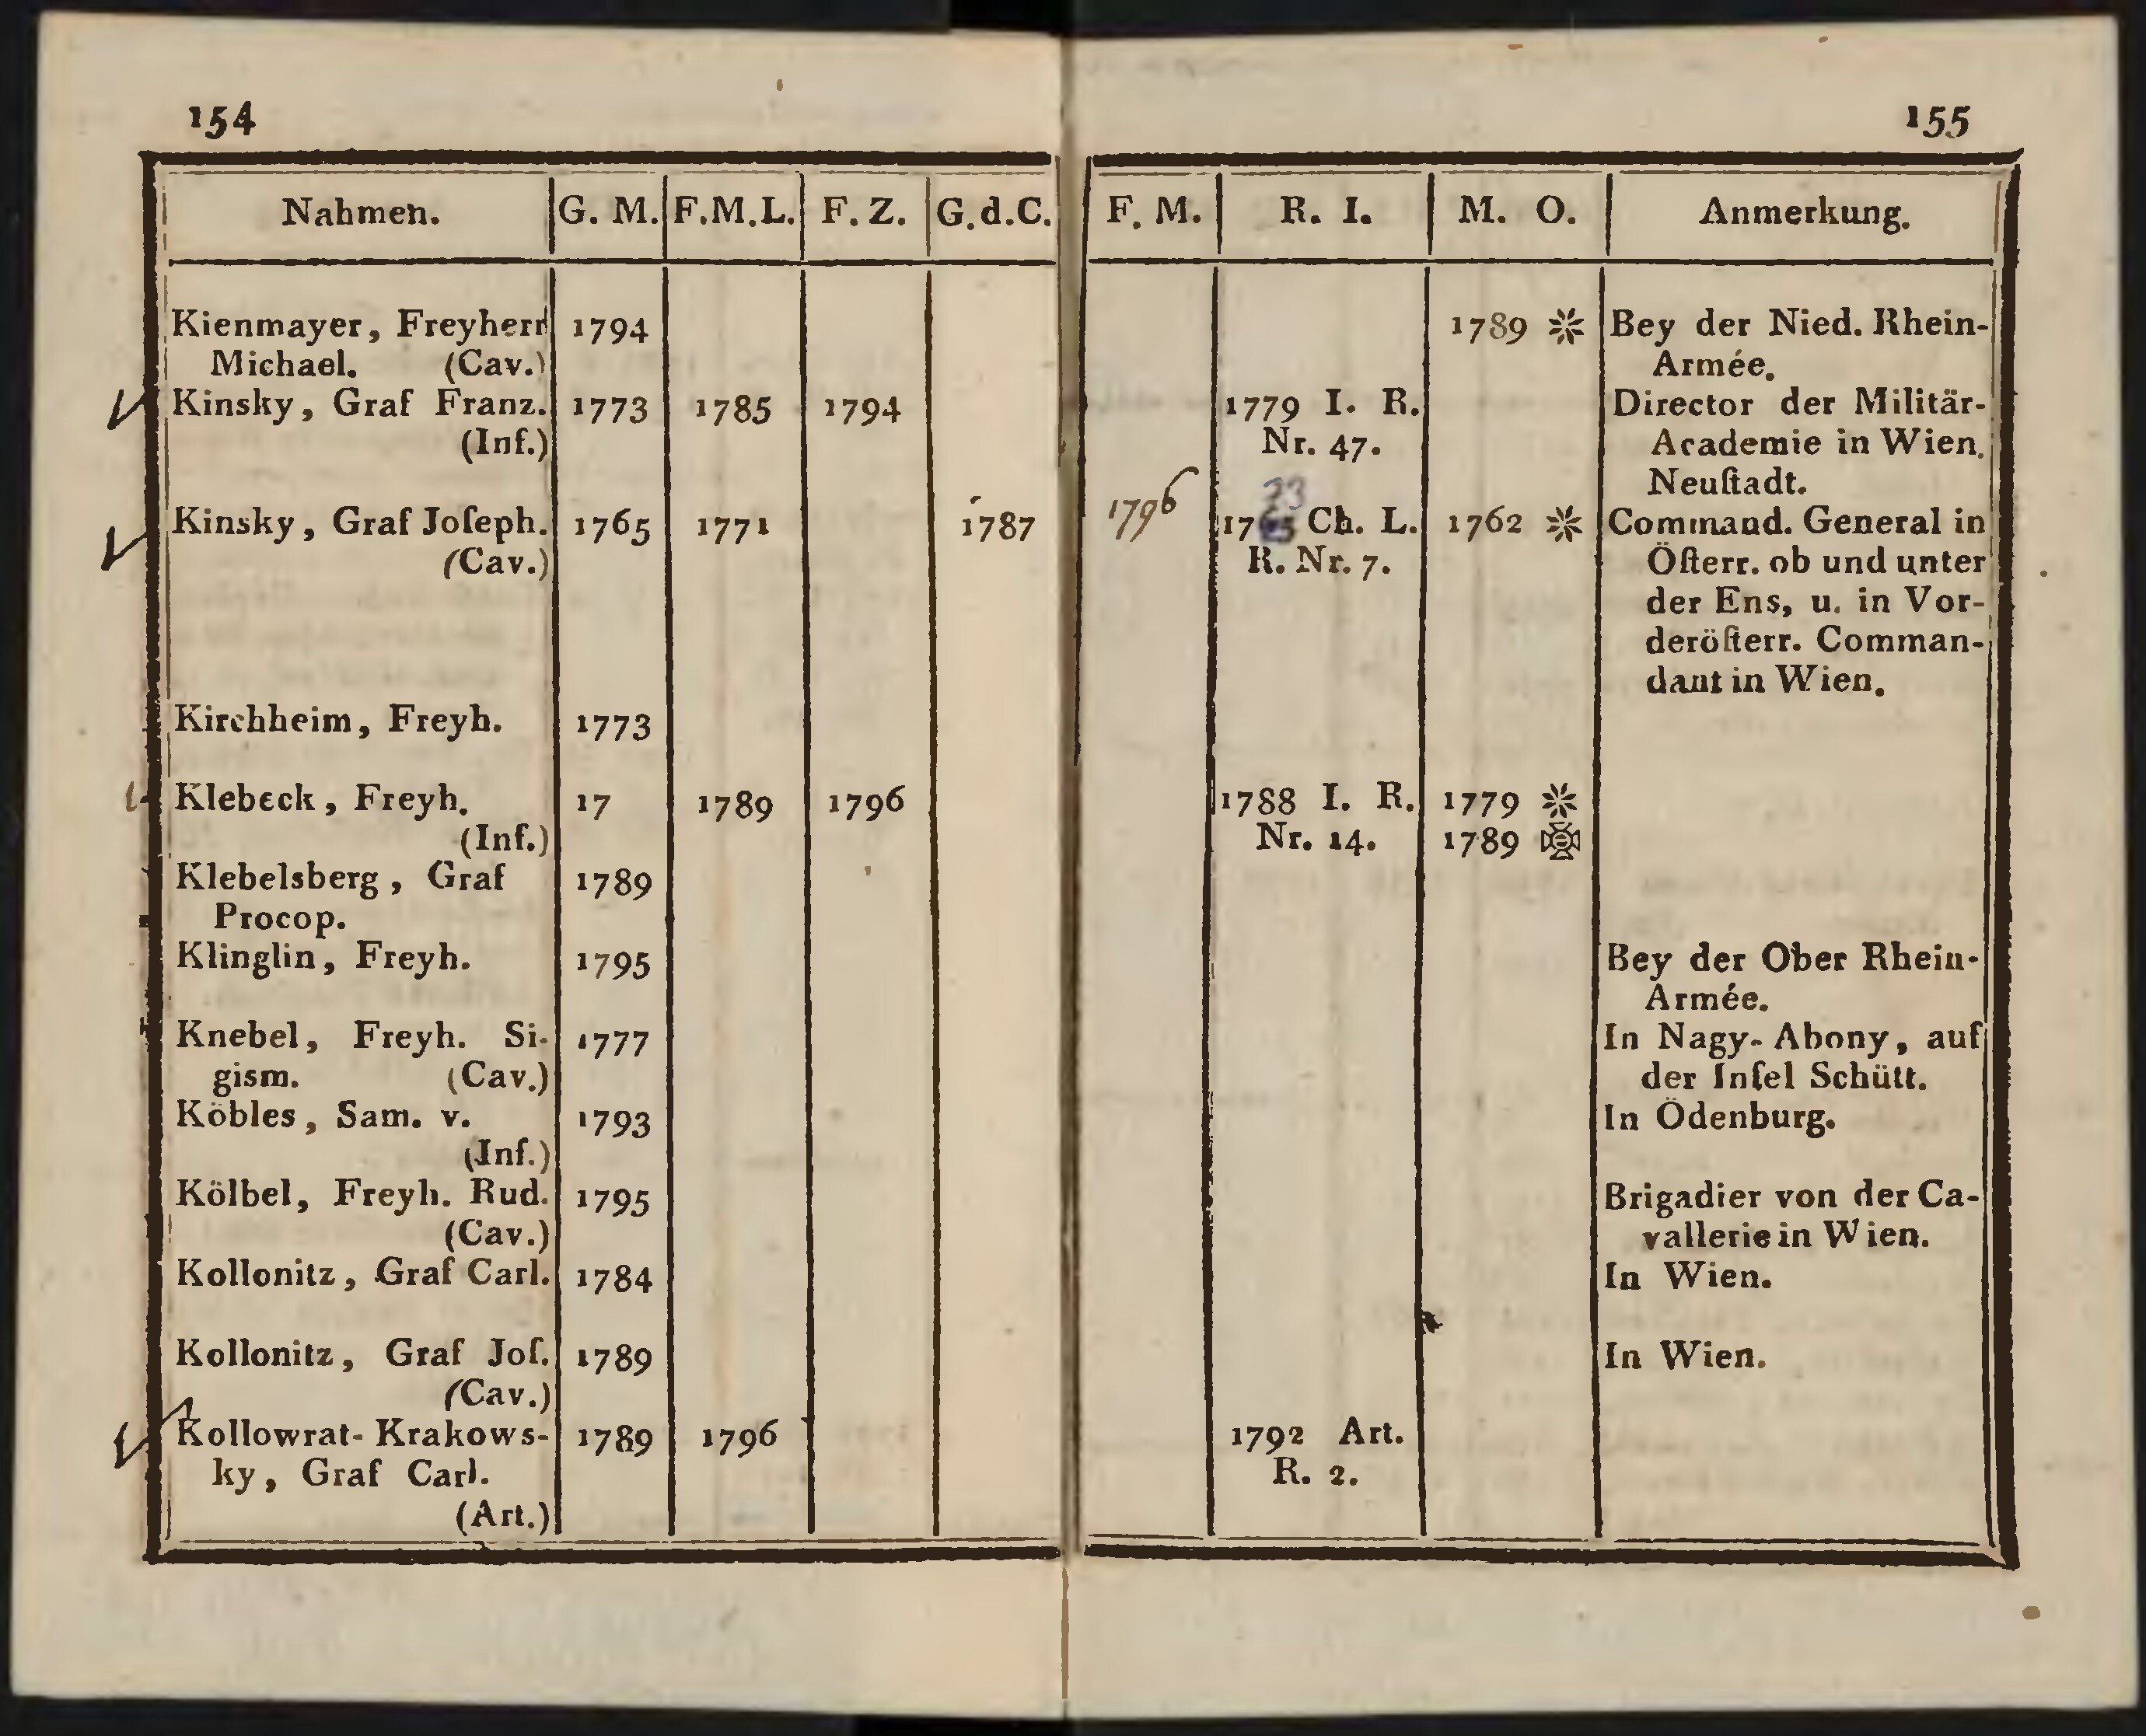 154
Nahmen. G. M. F.M.L. F. Z. G.d.C.
Kienmayer, Freyherr 1794
Michael. (Cav.)
Kinsky, Graf Franz. 1773 1785 1794
(Inf.)
Kinsky, Graf Joſeph. 1765 1771 1787
(Cav.)
Kirchheim, Freyh. 1773
Klebeck, Freyh. 17 1789 1796
(Inf.)
Klebelsberg, Graf 1789
Procop.
Klinglin, Freyh. 1795
Knebel, Freyh. Si- 1777
gism. (Cav.)
Köbles, Sam. v. 1793
(Inf.)
Kölbel, Freyh. Rud. 1795
(Cav.)
Kollonitz, Graf Carl. 1784
Kollonitz, Graf Joſ. 1789
(Cav.)
Kollowrat-Krakows- 1789 1796
ky, Graf Carl.
(Art.)
155
F. M. R. I. M. O. Anmerkung.
1789 Bey der Nied. Rhein-
Armée.
1779 I. R. Director der Militär-
Nr. 47. Academie in Wien.
Neuſtadt.
73
1796 Ch. L. 1762 Command. General in
R. Nr. 7. Öſterr. ob und unter
der Ens, u. in Vor-
deröſterr. Comman-
dant in Wien.
1788 I. R. 1779
Nr. 14. 1789
Bey der Ober Rhein-
Armée.
In Nagy-Abony, auf
der Inſel Schütt.
In Ödenburg.
Brigadier von der Ca-
vallerie in Wien.
In Wien.
In Wien.
1792 Art.
R. 2.